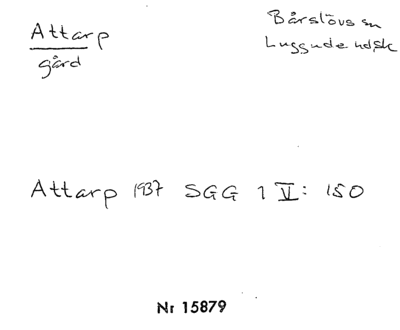 Attarp
gård
Bårslövs sn
Luggude hd, Sk
Attarp 1937 SGG 1 V: 150
Nr 15879